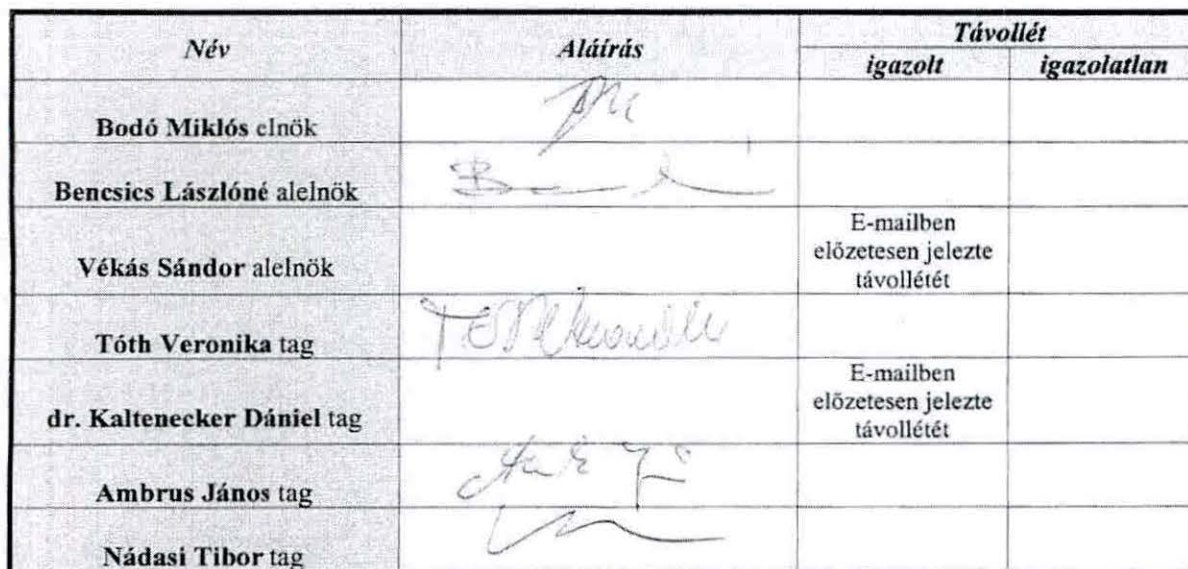 Név Aláírás Távollét
igazolt igazolatlan
Bodó Miklós elnök
Bencsics Lászlóné alelnök
Vékás Sándor alelnök E-mailben
előzetesen jelezte
távollétét
Tóth Veronika tag
dr. Kaltenecker Dániel tag E-mailben
előzetesen jelezte
távollétét
Ambrus János tag
Nádasi Tibor tag